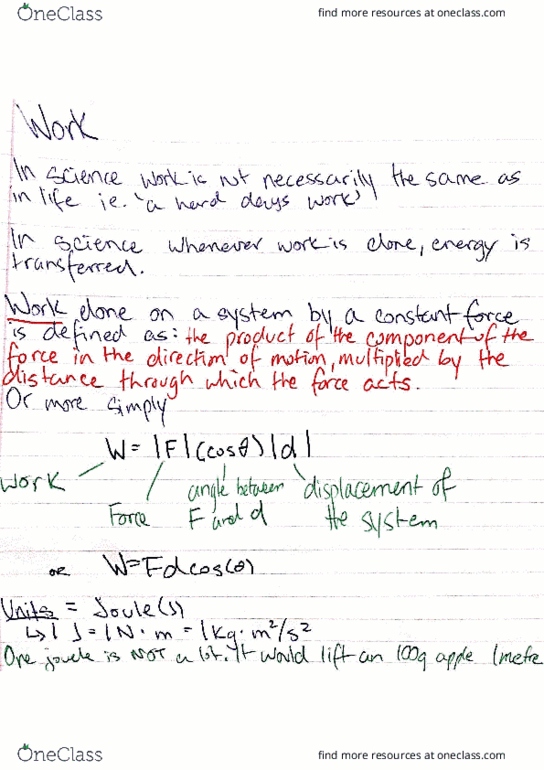 OneClass
find more resources at oneclass.com
Work
In science work is not necessarily the same as
in life ie. 'a hard days work'
In science whenever work is done, energy is
transferred.
Work done on a system by a constant force
is defined as: the product of the component of the
force in the direction of motion, multiplied by the
distance through which the force acts.
Or more simply
W = |F|(cosθ)|d|
Work
angle between displacement of
Force F and d the system
or W=Fdcos(θ)
Units = Joule(s)
↳ 1 J = 1N·m = 1Kg·m²/s²
One joule is NOT a lot. It would lift an 100g apple 1metre
OneClass
find more resources at oneclass.com